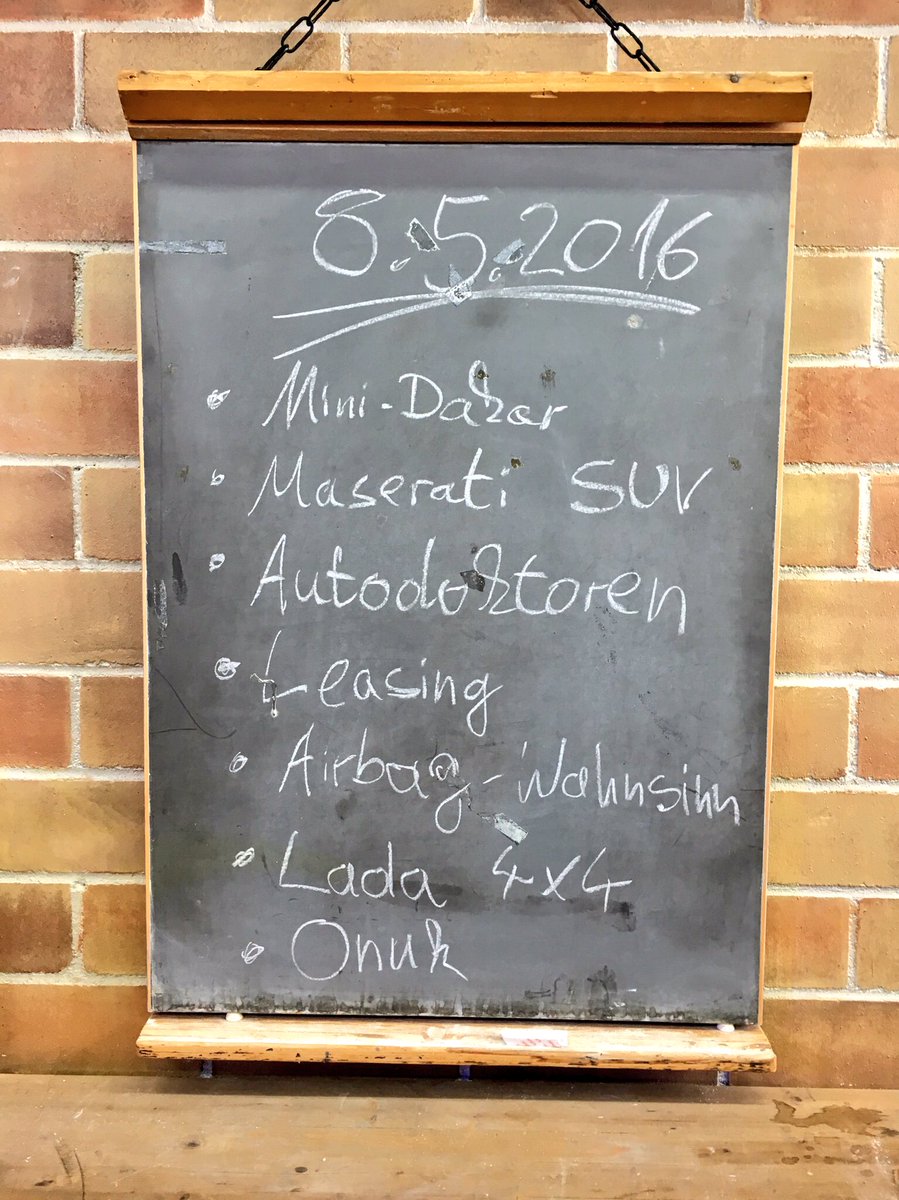 8.5.2016
• Mini-Dakar
• Maserati SUV
• Autodoktoren
• Leasing
• Airbag-Wahnsinn
• Lada 4x4
• Onuk